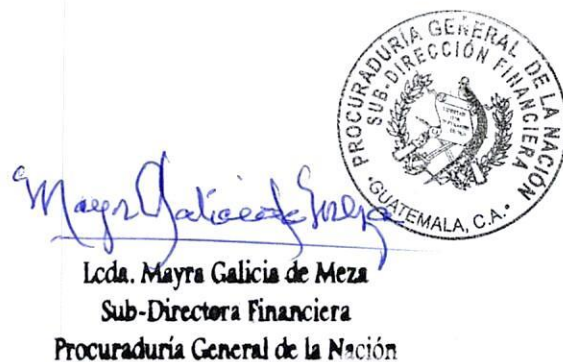 PROCURADURÍA GENERAL DE LA NACIÓN
SUB-DIRECCIÓN FINANCIERA
•GUATEMALA, C.A.•
Lcda. Mayra Galicia de Meza
Sub-Directora Financiera
Procuraduría General de la Nación